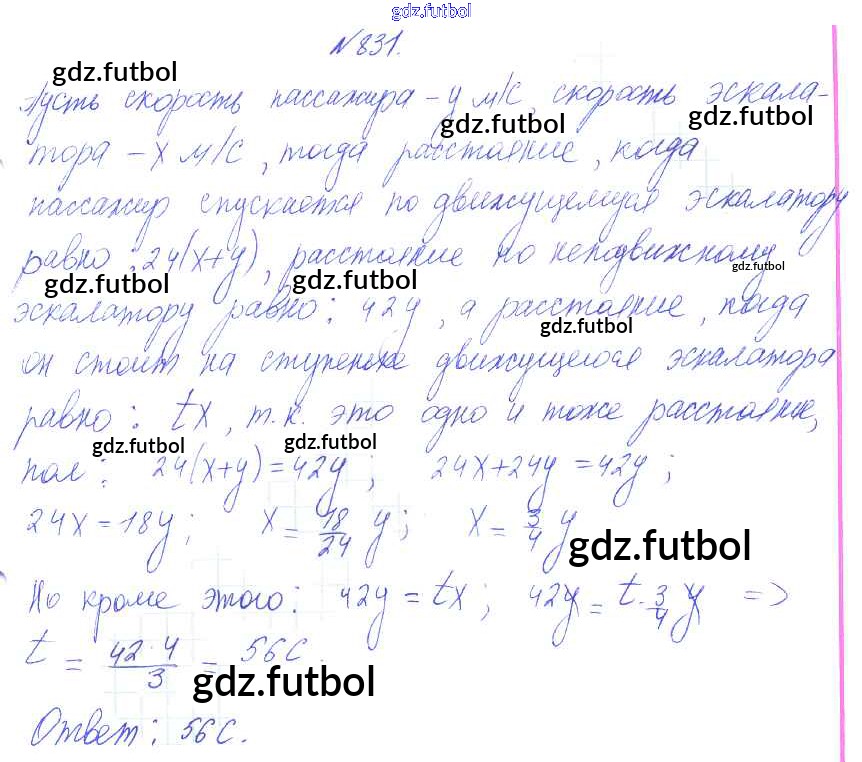 gdz.futbol
№831.
gdz.futbol
Пусть скорость пассажира – y м/с, скорость эскала-
gdz.futbol
gdz.futbol
тора – x м/с, тогда расстояние, когда
пассажир спускается по движущемуся эскалатору
равно: 24(x+y), расстояние по неподвижному
gdz.futbol
gdz.futbol
gdz.futbol
эскалатору равно: 42y, а расстояние, когда
gdz.futbol
он стоит на ступеньке движущегося эскалатора
равно: tx, т.к. это одно и тоже расстояние,
gdz.futbol
gdz.futbol
пол: 24(x+y)=42y; 24x+24y=42y;
24x=18y; x=18/24 y; x=3/4 y
gdz.futbol
Но кроме этого: 42y=tx; 42y=t·3/4 y =>
t = 42·4/3 = 56с.
gdz.futbol
Ответ: 56с.